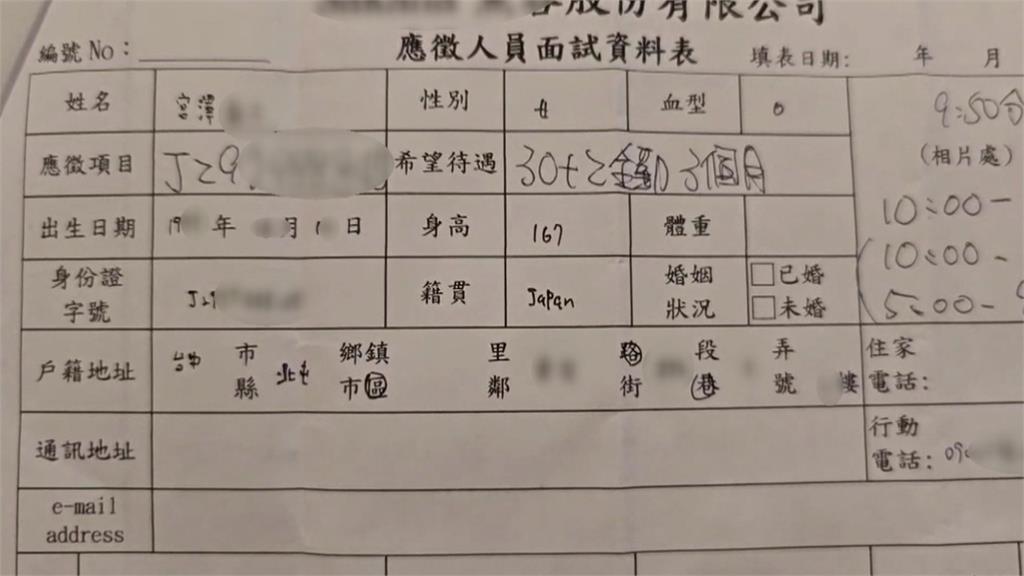 股份有限公司
應徵人員面試資料表
編號 No： 填表日期: 年 月
姓名 宮澤 性別 女 血型 O 9:50分
應徵項目 J29 希望待遇 30+2全勤 3個月 (相片處)
出生日期 19 年 月 1 日 身高 167 體重 10:00-
身份證字號 J29 籍貫 Japan 婚姻狀況 □已婚 □未婚 (10:00- 5:00-
戶籍地址 台中 市縣 北屯 鄉鎮市區 里鄰 路街 段巷 弄號 樓 住家電話:
通訊地址 行動電話: 09
e-mail address